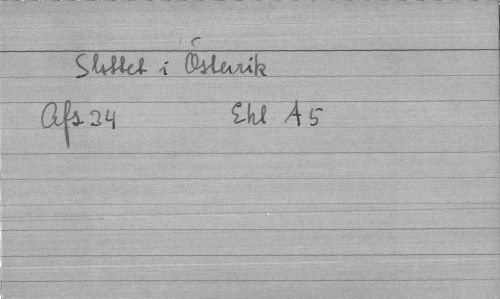 Slottet i Österrik
Afs 34 Ehl A5